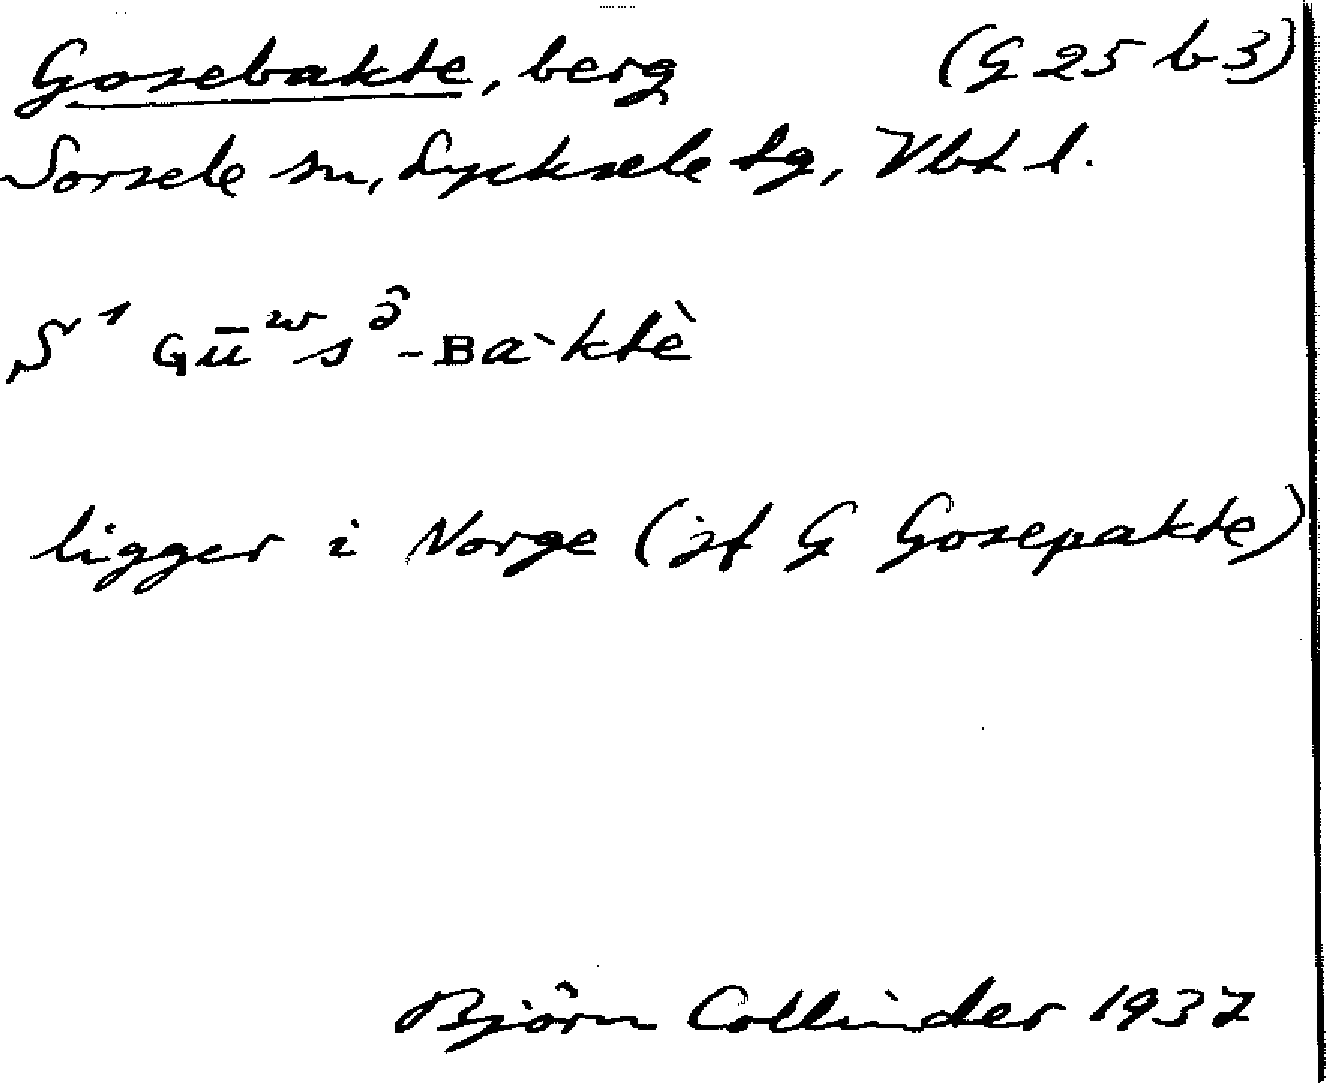 Gosebakte, berg (G 25 b 3)
Sorsele sn, Lycksele tg, Vbt l.
S¹ Gūʷsᵊ̂-Bàktè
ligger i Norge (jf G Gosepakte)
Björn Collinder 1937